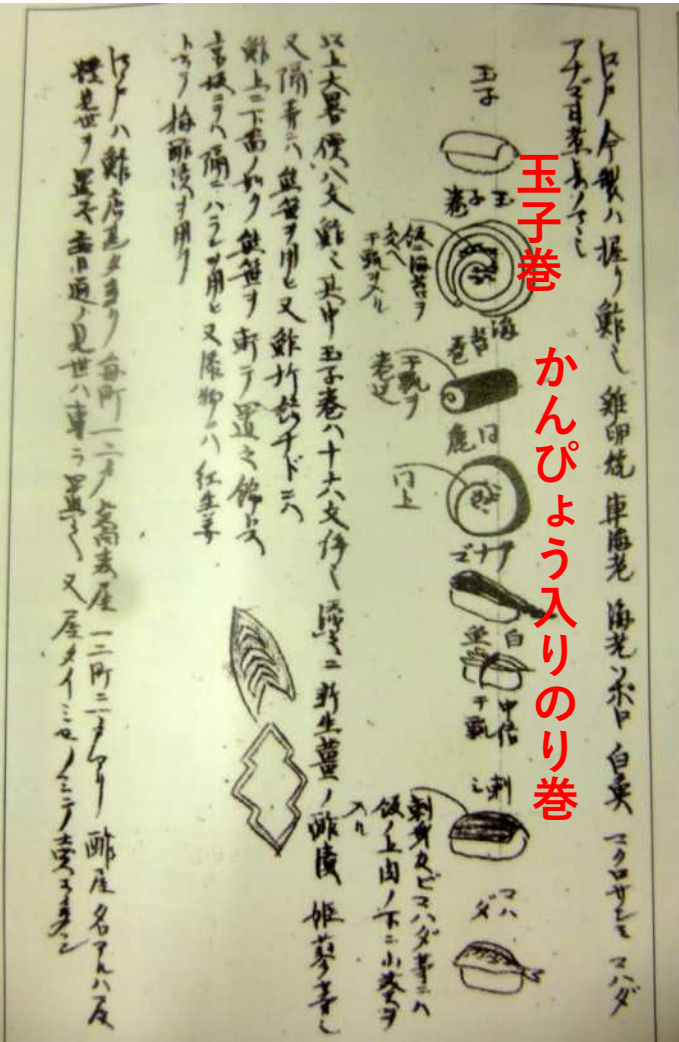 江戸今製ハ握リ鮓也 雞卵焼 車海老 海老ソボロ 白魚 マグロサシミ コハダ
アナゴ甘煮長ノマヽ也
玉子
玉子巻
飯ニ海苔ヲ
交ヘ
干瓢ヲ入ル
海苔巻
干瓢ヲ
巻込
同鹿
同上
アナゴ
白魚
中結干瓢
刺ミ
刺身及ビコハダ等ニハ
飯ノ上肉ノ下ニ山葵ヲ
入ル
コハダ
玉子巻 かんぴょう入りのり巻
以上大畧價八文鮓也 其中玉子巻ハ十六文許也 添之ニ新生薑ノ酢漬 姫蓼等也
又隔等ニハ熊笹ヲ用ヒ又鮓折詰ナドニハ
鮓上ニ下図ノ如ク熊笹ヲ斬テ置之飾トス
京坂ニテハ隔ニハランヲ用ヒ又添物ニハ紅生姜
ト云テ梅酢漬ヲ用フ
江戸ハ鮓店甚タ多ク毎町一二戸 蕎麦屋一二町ニ一戸アリ 酢屋名アルハ屋
体見世ヲ置ズ普通ノ見世ハ専ラ置之 又屋タイミセノミニテ賣ルモ多シ